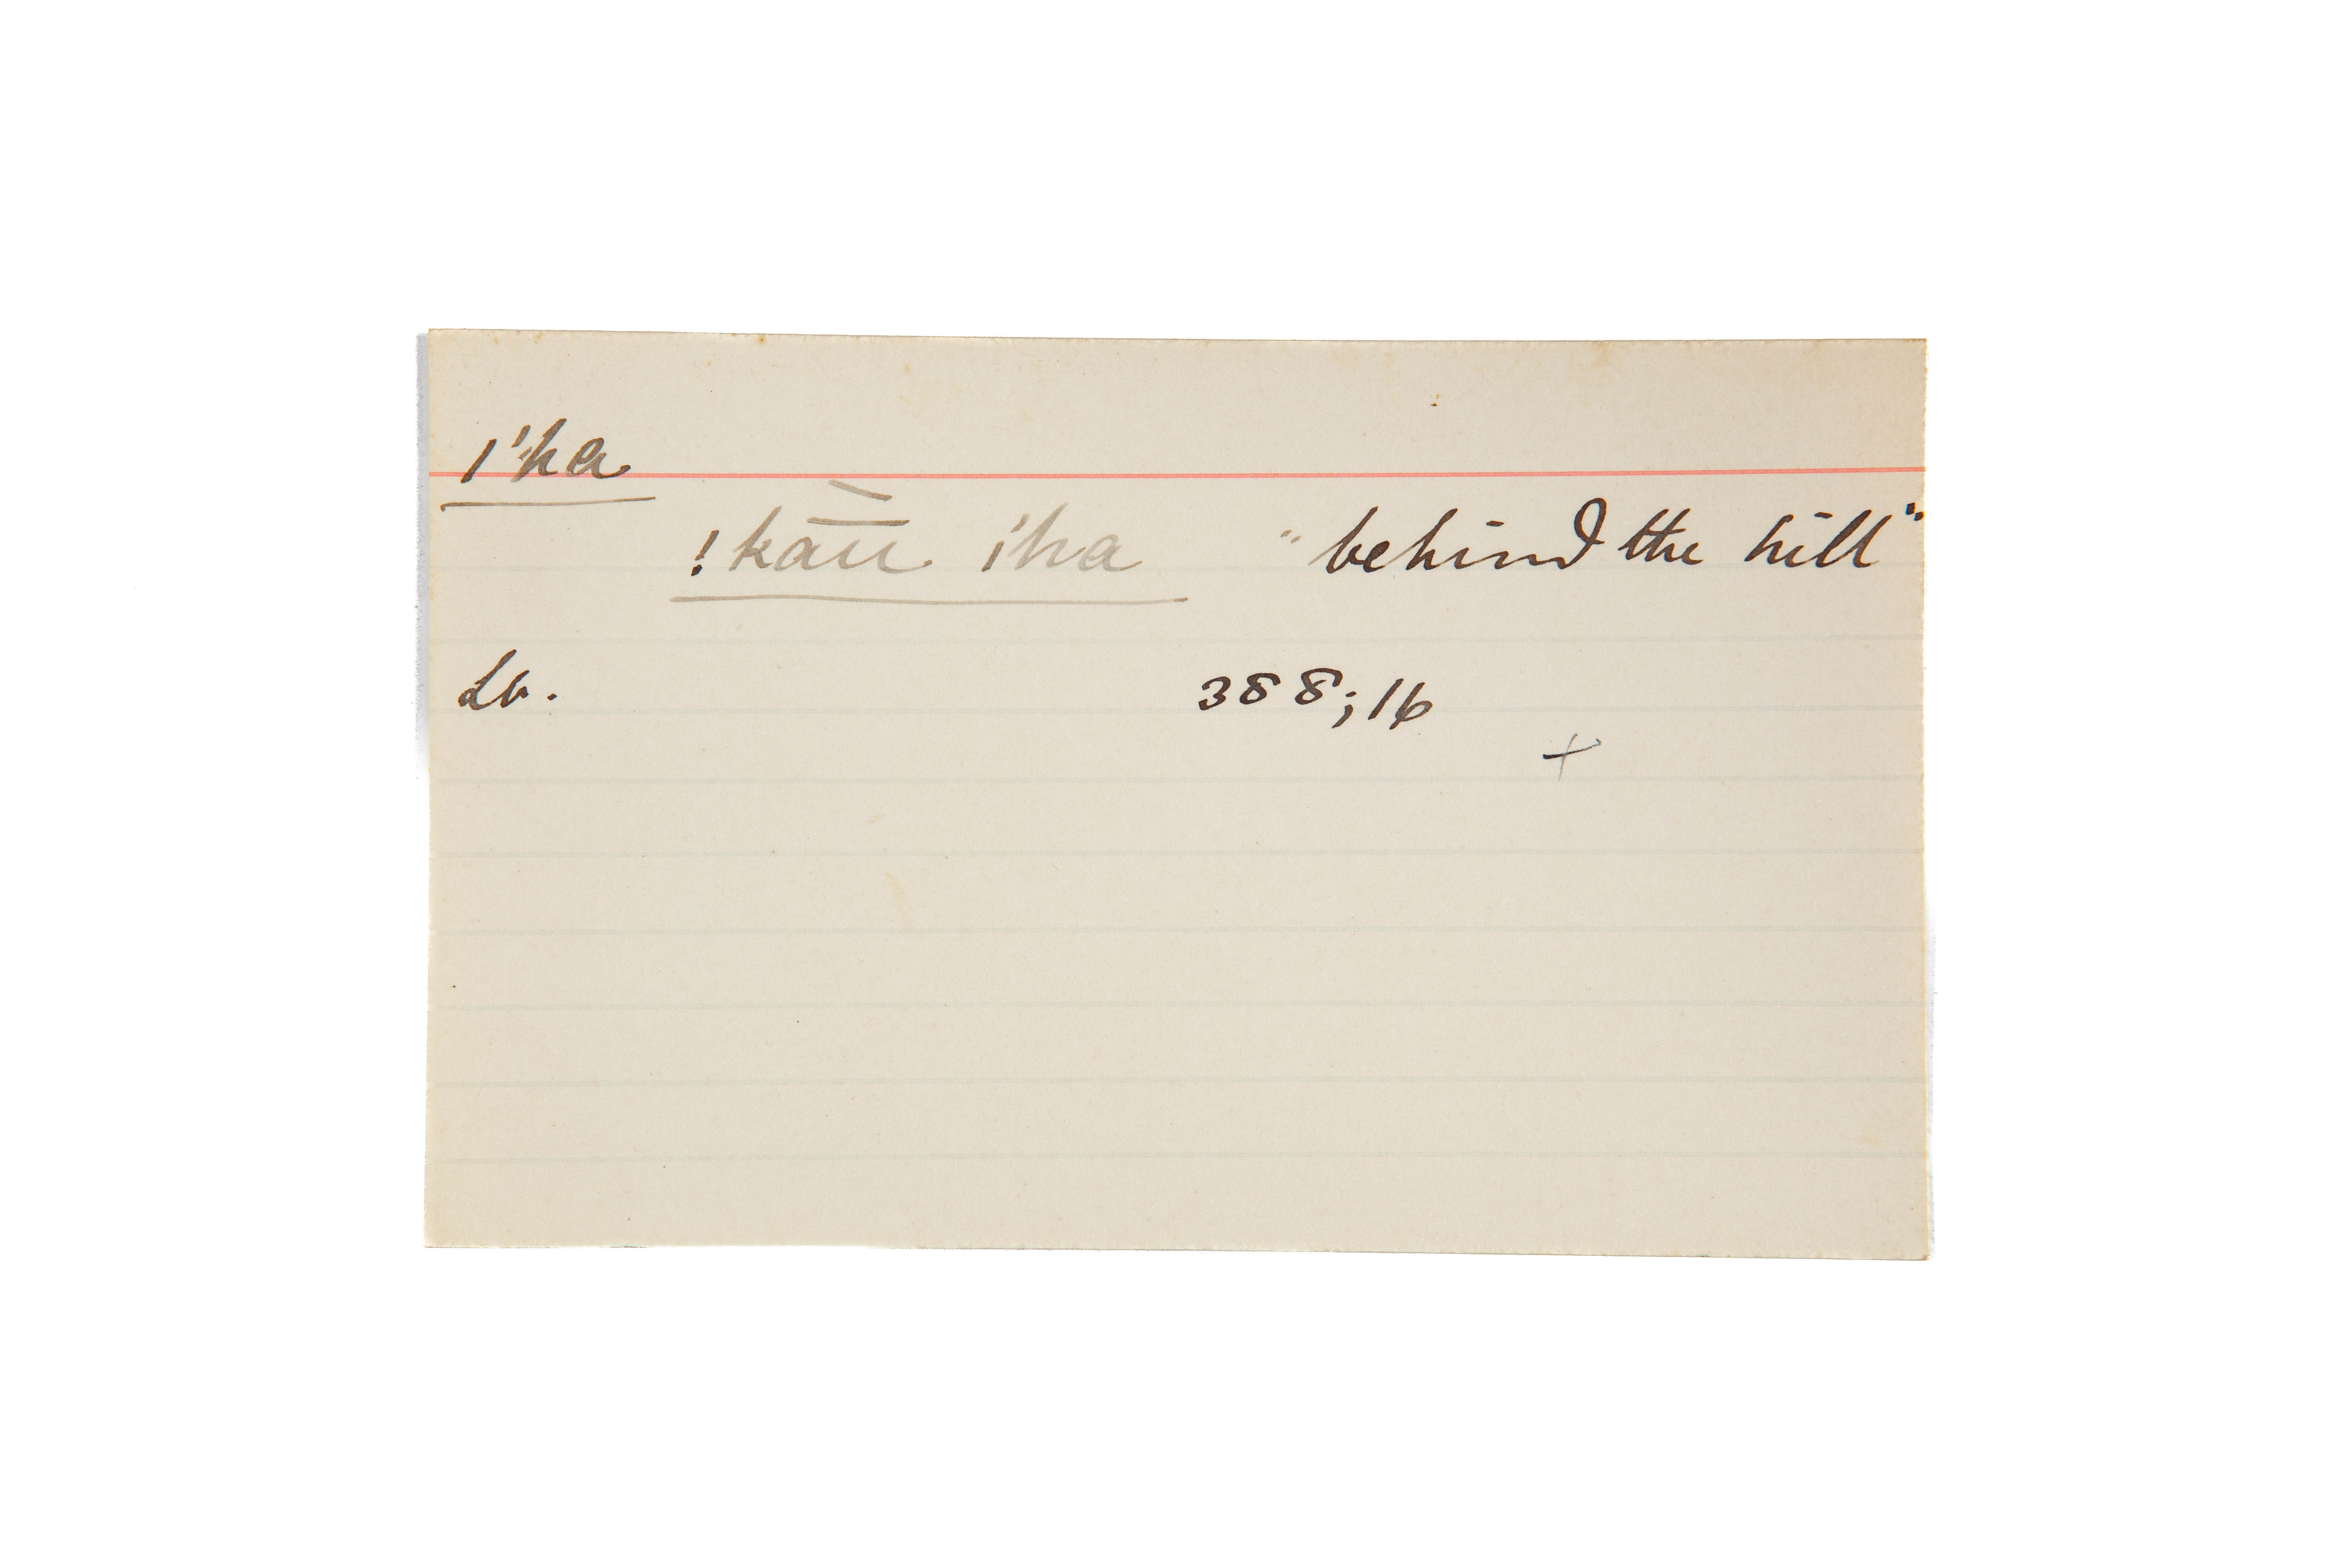 i'ha
!kāū̀ i'ha "behind the hill"
Lv. 388; 16
+